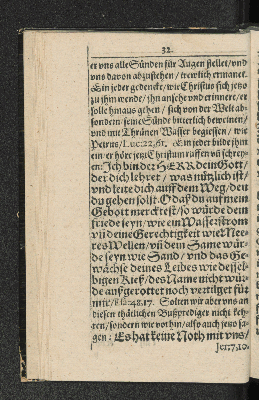 32.
er vns alle Sünden für Augen stellet / vnd
vns davon abzustehen / trewlich ermanet.
Ein jeder gedencke / wie Christus sich jetzo
zu ihm wende / ihn ansehe vnd erinnere / er
solle hinaus gehen / sich von der Welt ab-
sondern / seine Sünde bitterlich beweinen /
vnd mit Thränen Wasser begiessen / wie
Petrus / Luc: 22, 61. Ein jeder bilde ihm
ein / er höre jetzt Christum ruffen vñ schrey-
en: Ich bin der HERR dein Gott /
der dich lehret / was nützlich ist /
vnd leite dich auff dem Weg / den
du gehen solst. O daß du auff mein
Gebott mercktest / so würde dein
friede seyn / wie ein Wasserstrom
vñ deine Gerechtigkeit wie Mee-
res Wellen / vñ dein Same wür-
de seyn wie Sand / vnd das Ge-
wächse deines Leibes wie dessel-
bigen Kieß / des Name nicht wür-
de außgerottet noch vertilget für
mir / Esa: 48. 17. Solten wir aber vns an
diesen thätlichen Bußprediger nicht keh-
ren / sondern wie vorhin / also auch jetzo sa-
gen: Es hat keine Noth mit vns /
Jer: 7, 10.